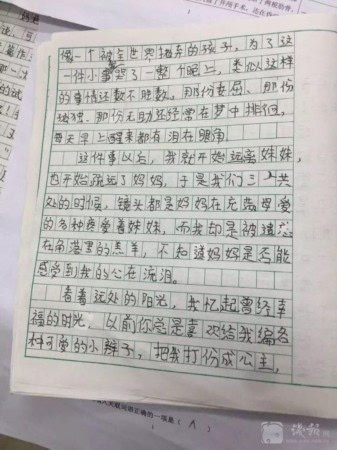 像一个被全世界抛弃的孩子,为了这
一件小事哭了一整个晚上,类似这样
的事情还数不胜数。那份委屈、那份
孤独、那份无助还经常在梦中排徊,
每天早上醒来都有泪在眼角。
这件事以后,我就开始远离妹妹,
也开始疏远了妈妈,于是我们三人共
处的时候,镜头都是妈妈在充满母爱
的多种疼爱着妹妹,而我却是被遗忘
在角落里的羔羊,不知道妈妈是否能
感受到我的心在流泪。
看着远处的阳光,我忆起曾经幸
福的时光,以前你总是喜欢给我编各
种可爱的小辫子,把我打份成公主,
正确的一项是(A)